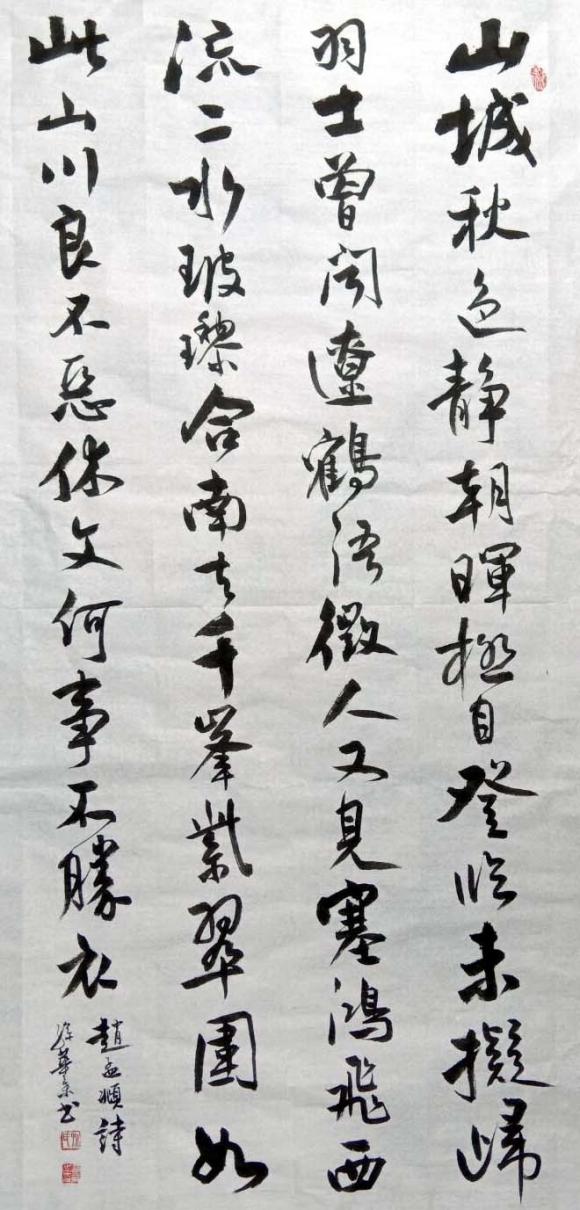 山城秋色靜朝暉極目登临未擬歸
羽士曾闻遼鶴语徵人又見塞鴻飛西
流二水玻瓈合南去千峯紫翠圍如
此山川良不惡休文何事不勝衣
趙孟頫詩
徐華书